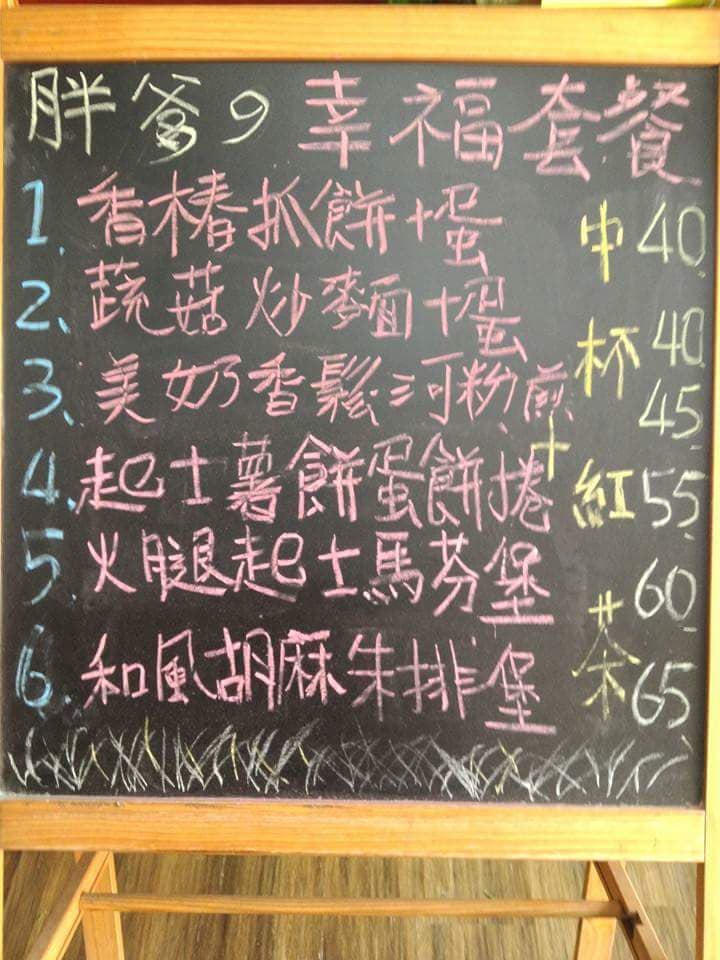 胖爹の幸福套餐
1、香椿抓餅+蛋 40
2、蔬菇炒麵+蛋 40
3、美奶香鬆河粉煎 45
4、起士薯餅蛋餅捲 55
5、火腿起士馬芬堡 60
6、和風胡麻朱排堡 65
+中杯紅茶